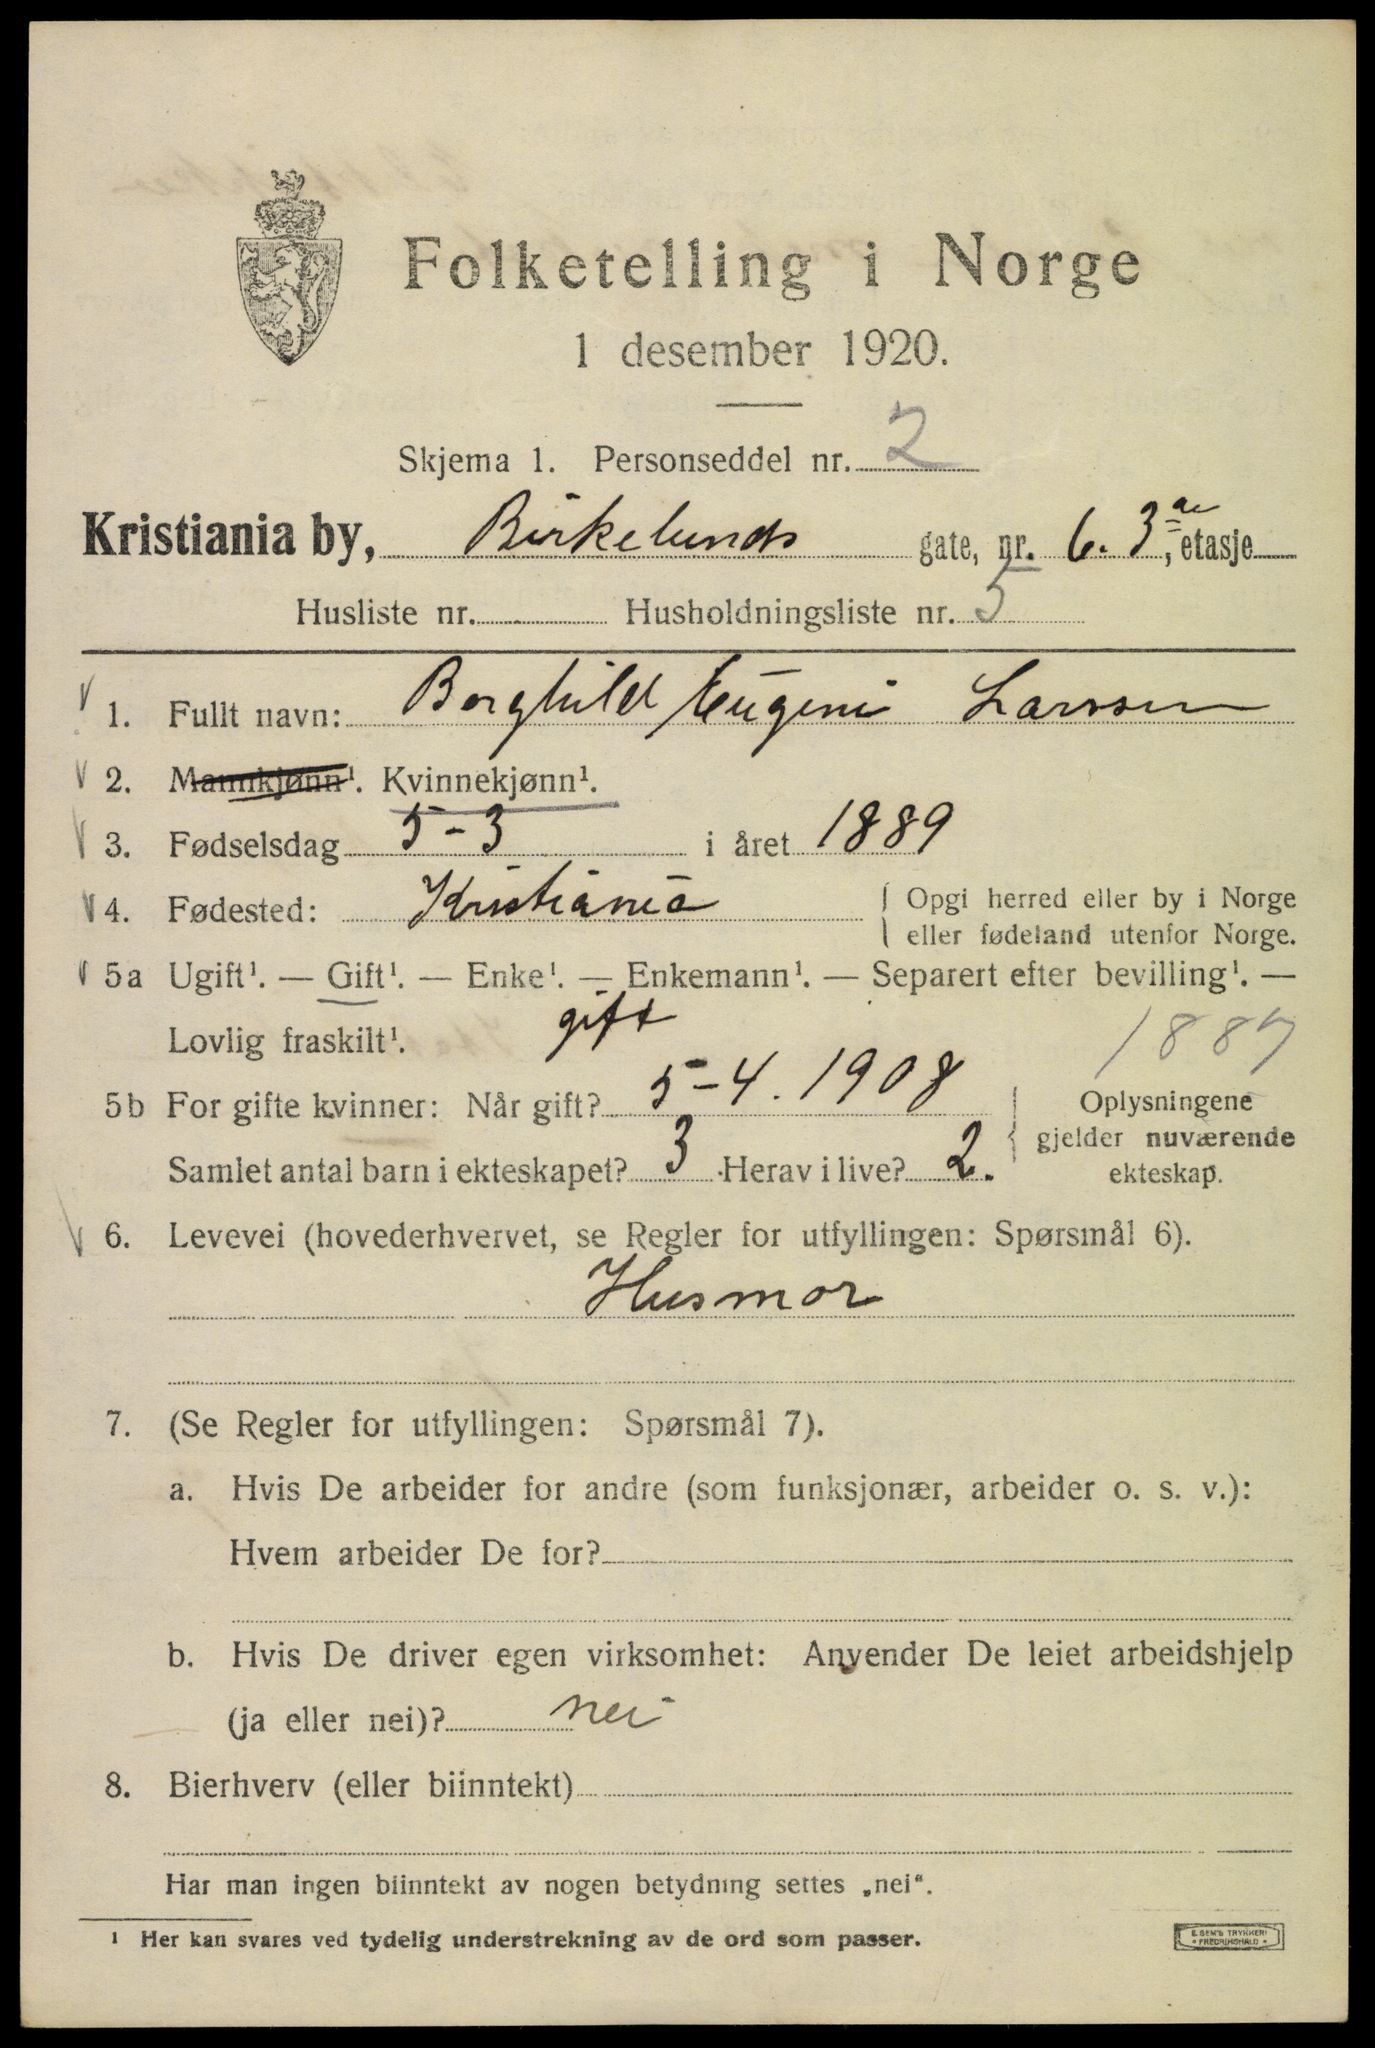 Folketelling i Norge
1 desember 1920.
Skjema 1. Personseddel nr. 2
Kristiania by, Birkelunds gate, nr. 6. 3 etasje
Husliste nr. Husholdningsliste nr. 5
1. Fullt navn: Borghild Eugeni Larsen
2. Mannkjønn¹. Kvinnekjønn¹.
3. Fødselsdag 5-3 i året 1889
4. Fødested: Kristiania { Opgi herred eller by i Norge
eller fødeland utenfor Norge.
5a Ugift¹. — Gift¹. — Enke¹. — Enkemann¹. — Separert efter bevilling¹. —
Lovlig fraskilt¹. gift
5b For gifte kvinner: Når gift? 5-4. 1908 { Oplysningene
gjelder nuværende
Samlet antal barn i ekteskapet? 3 Herav i live? 2. ekteskap.
6. Levevei (hovederhvervet, se Regler for utfyllingen: Spørsmål 6).
Husmor
7. (Se Regler for utfyllingen: Spørsmål 7).
a. Hvis De arbeider for andre (som funksjonær, arbeider o. s. v.):
Hvem arbeider De for?
b. Hvis De driver egen virksomhet: Anvender De leiet arbeidshjelp
(ja eller nei)? nei
8. Bierhverv (eller biinntekt)
Har man ingen biinntekt av nogen betydning settes „nei“.
¹ Her kan svares ved tydelig understrekning av de ord som passer.
E. SEM'S TRYKKERI
FREDRIKSHALD